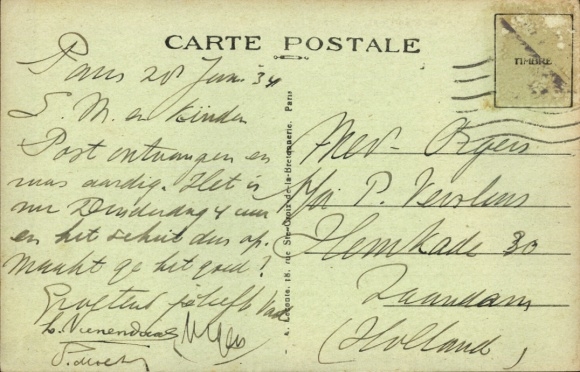 CARTE POSTALE
TIMBRE
Paris 20 Juni 34
L. M. en Kinder
Post ontvangen en
was aardig. Het is
nu Donderdag 4 uur
en het schiet dus op.
Maakt ge het goed?
Groetend
A. Leconte, 18, rue Ste-Croix-de-la-Bretonnerie, Paris
Mev.
P. Versluis
Hemkade 30
Zaandam
(Holland)